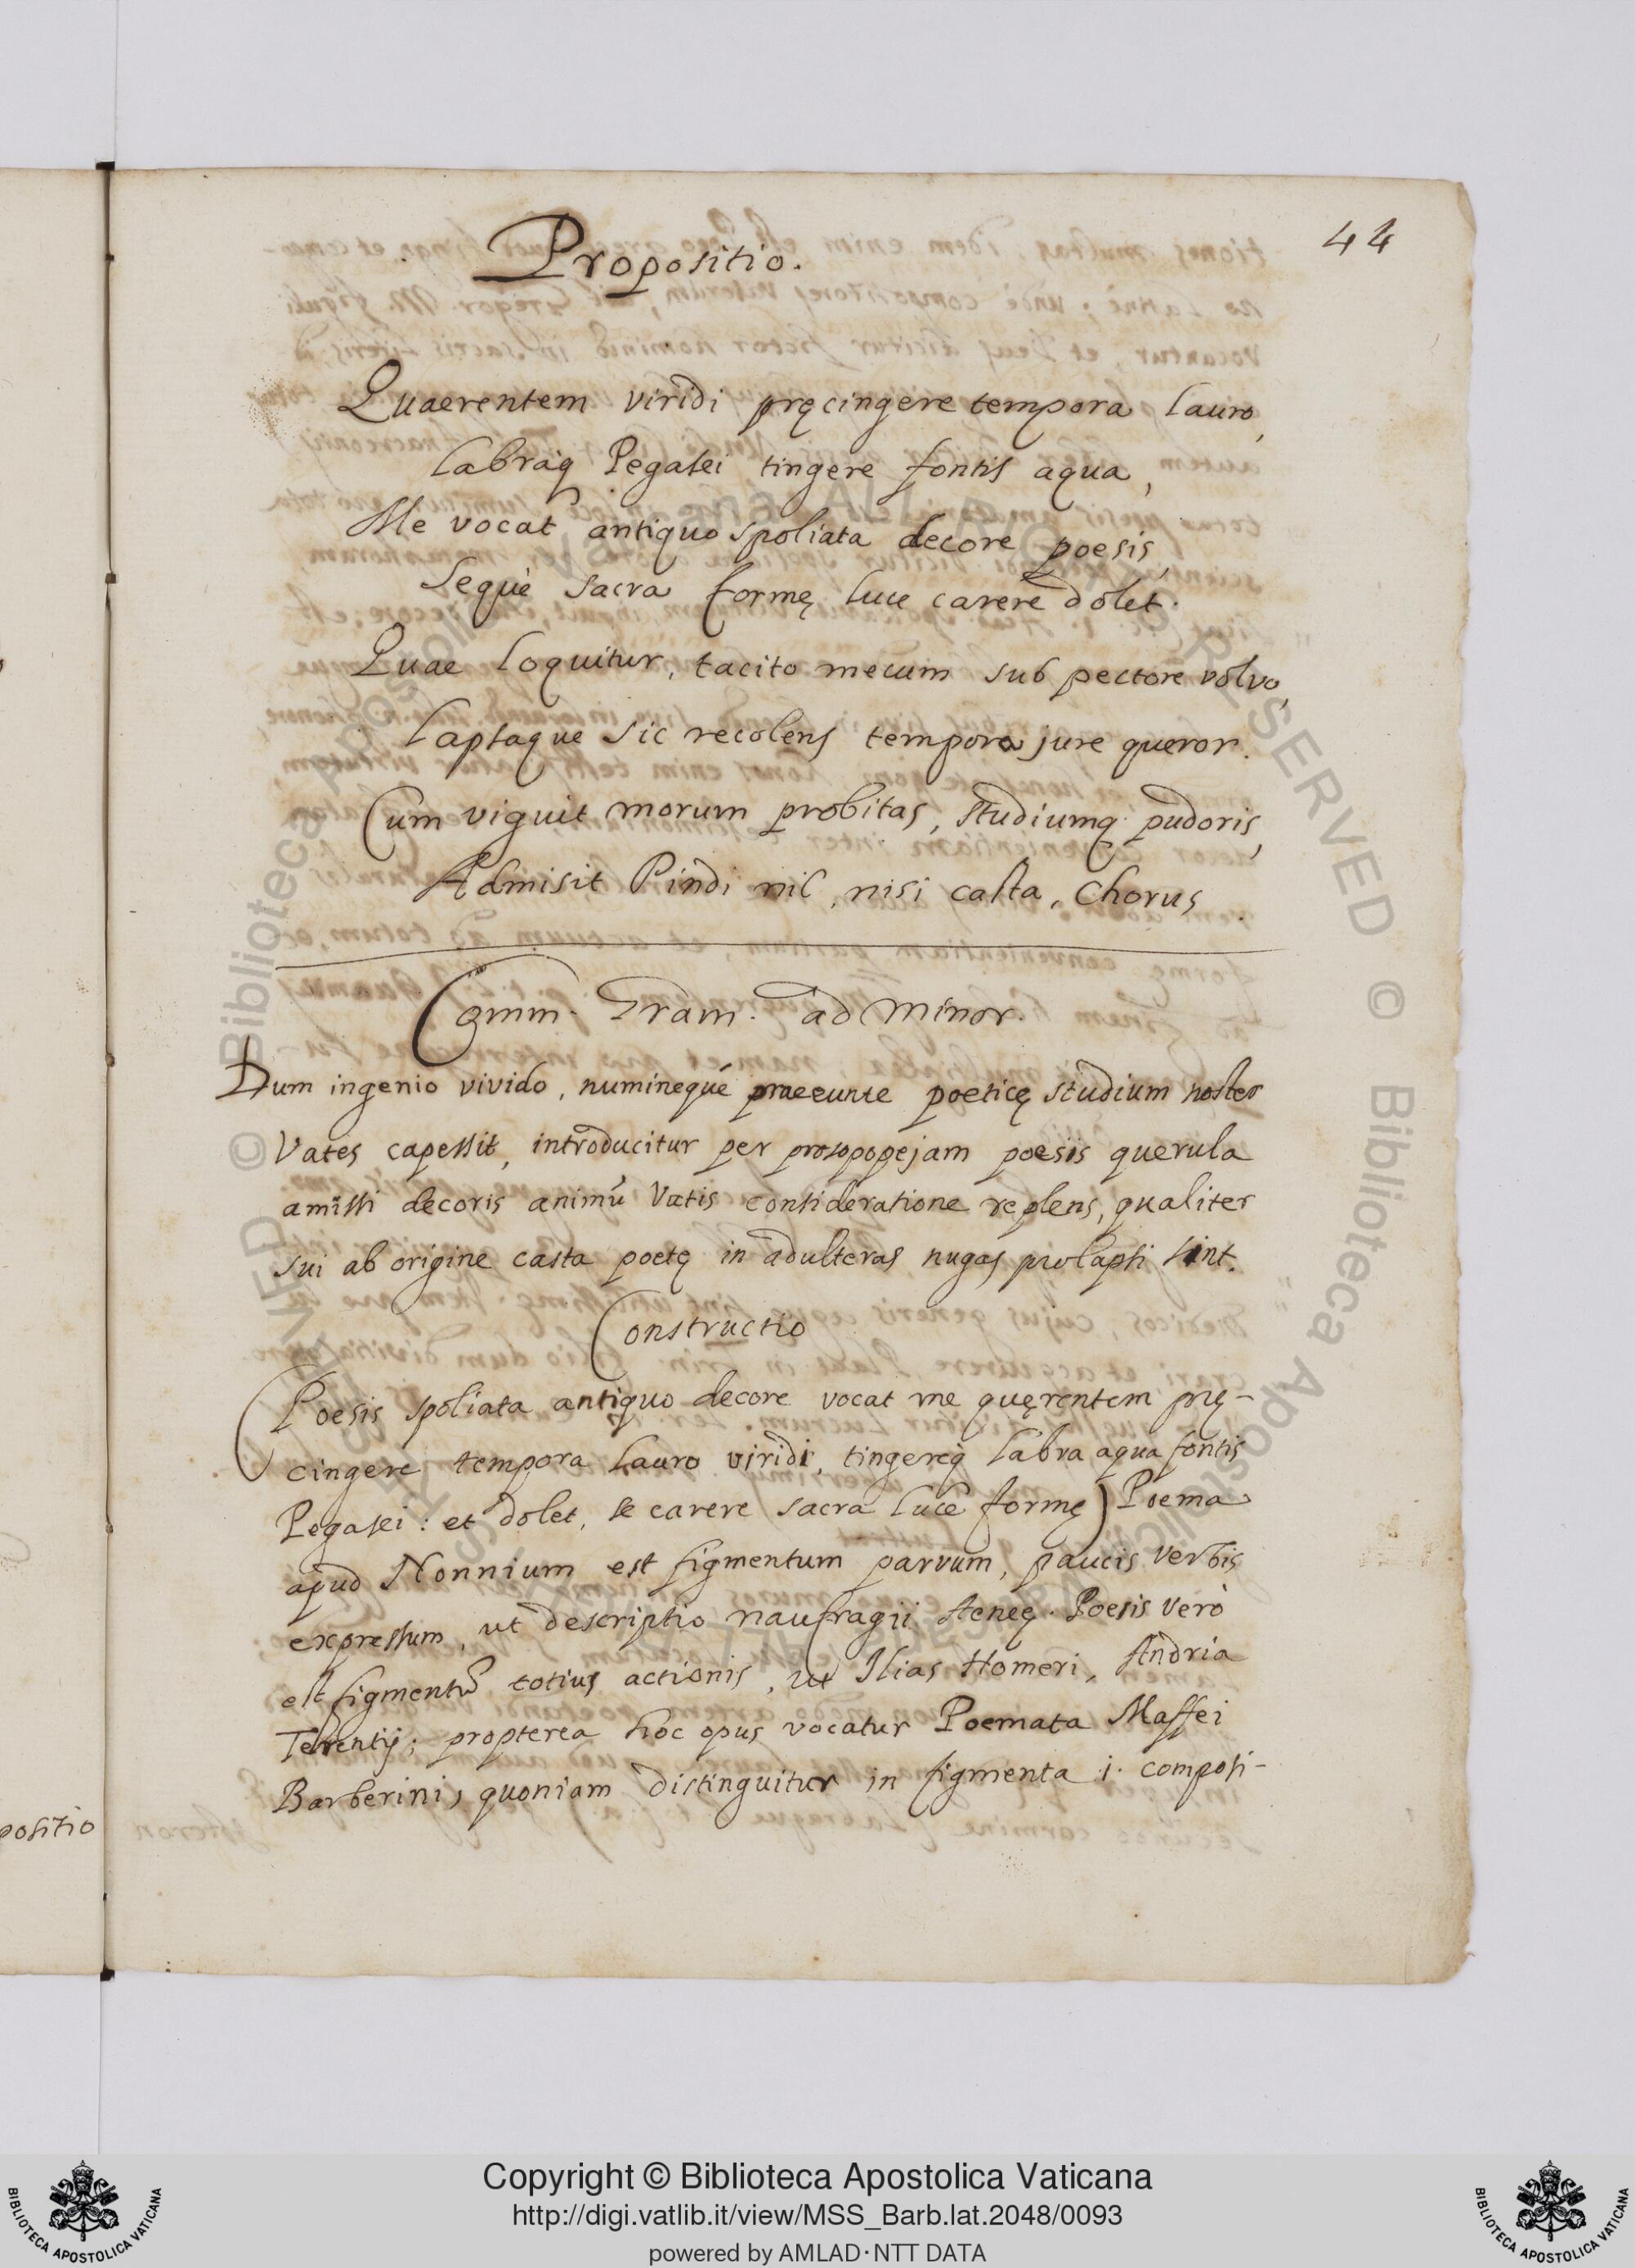 44
Propositio.
Quaerentem viridi pręcingere tempora lauro,
Labraq̀ Pegasei tingere fontis aqua,
Me vocat antiquo spoliata decore poesis,
Sequè sacra formę luce carere dolet.
Quae loquitur, tacito mecum sub pectore volvo,
Lapsaque sic recolens tempora jure queror.
Cum viguit morum probitas, studiumq. pudoris,
Admisit Pindi nil, nisi casta, Chorus.
Comm. Gram. ad Minor.
Dum ingenio vivido, numinequé praeeunte poeticę studium noster
Vates capessit, introducitur per prosopopejam poesis querula
amissi decoris animũ Vatis consideratione replens, qualiter
sui ab origine casta poetę in adulteras nugas prolapsi sint.
Constructio
(Poesis spoliata antiquo decore vocat me quęrentem prę-
cingere tempora lauro viridi, tingereq̀ labra aqua fontis
Pegasei: et dolet, se carere sacra luce formę) Poema
apud Nonnium est figmentum parvum, paucis verbis
expressum, ut descriptio naufragii Aeneę. Poesis verò
est figmentũ totius actionis, ut Ilias Homeri, Andria
Terentij; propterea hoc opus vocatur Poemata Maffei
Barberini, quoniam distinguitur in figmenta i. composi-
positio
© Biblioteca Apostolica Vaticana ALL RIGHTS RESERVED © Biblioteca Apostolica Vaticana ALL RIGHTS RESERVED
Copyright © Biblioteca Apostolica Vaticana
http://digi.vatlib.it/view/MSS_Barb.lat.2048/0093
powered by AMLAD·NTT DATA
BIBLIOTECA APOSTOLICA VATICANA
BIBLIOTECA APOSTOLICA VATICANA